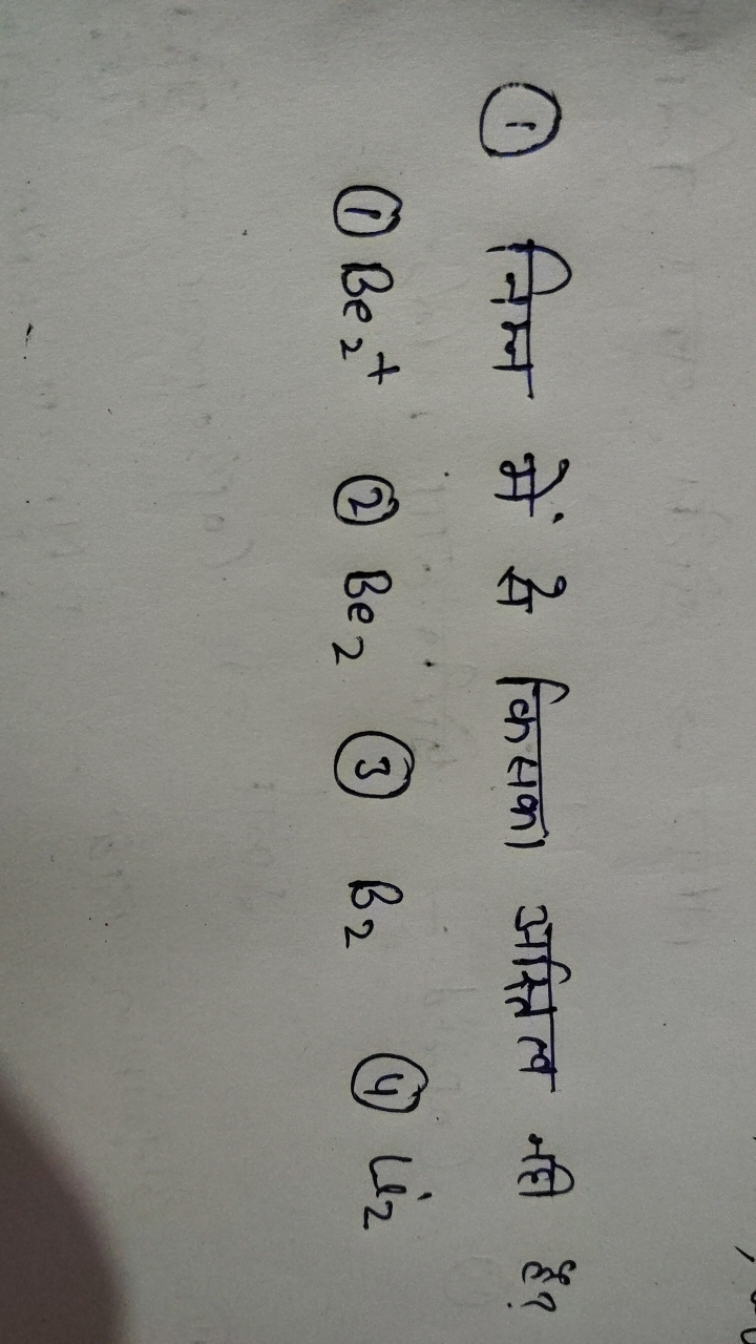 ① निम्न में से किसका अस्तित्व नही है?
① Be₂⁺ ② Be₂ ③ B₂ ④ Li₂